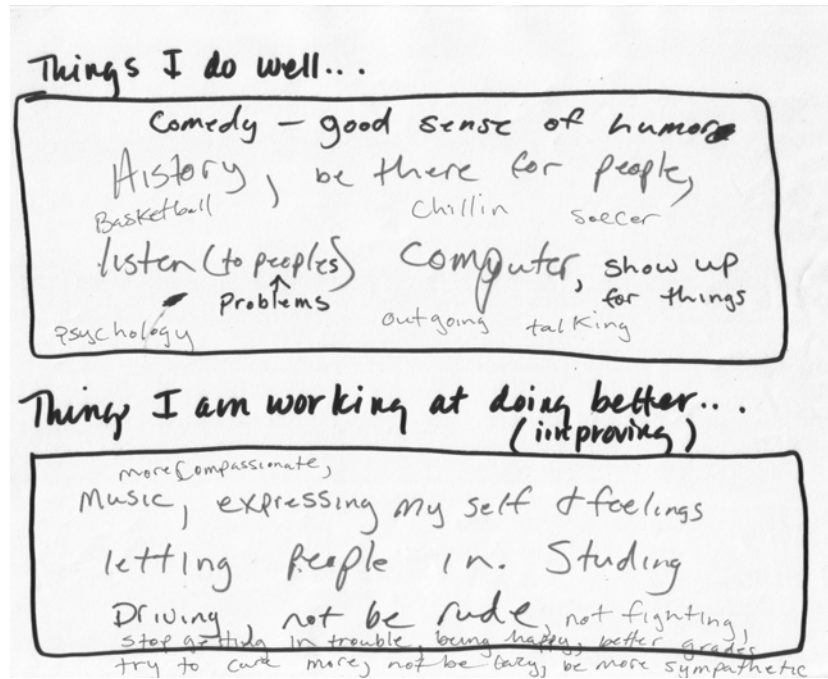 Things I do well...
Comedy – good sense of humor
History, be there for people,
Basketball chillin soccer
listen (to peoples) computer, show up
↑ problems for things
psychology outgoing talking
Things I am working at doing better...
(improving)
more compassionate,
Music, expressing my self & feelings
letting people in. Studing
Driving, not be rude, not fighting,
stop getting in trouble, being happy, better grades
try to care more, not be lazy, be more sympathetic